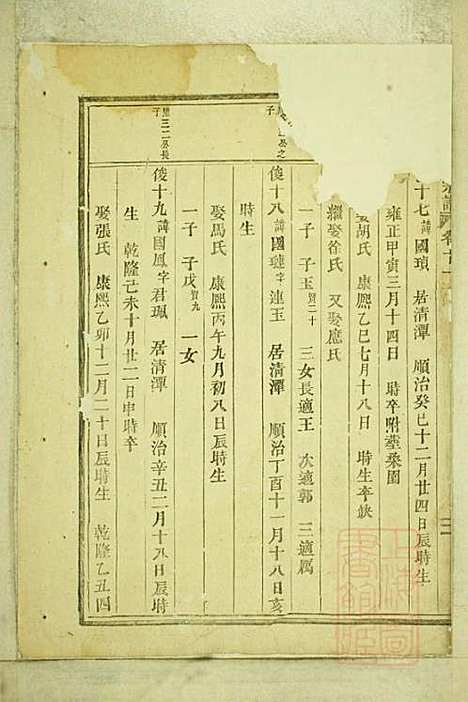 卷十一
十七 諱國瑣 居清潭 順治癸巳十二月廿四日辰時生
雍正甲寅三月十四日 時卒附塟桑園
娶胡氏 康熙乙巳七月十八日 時生卒缺
繼娶徐氏 又娶應氏
一子 子玉賢二十 三女長適王 次適郭 三適厲
俊十八 諱國璉字連玉 居清潭 順治丁酉十一月十八日亥
時生
娶馬氏 康熙丙午九月初八日辰時生
一子 子戊賢九 一女
俊十九 諱國鳳字君珮 居清潭 順治辛丑二月十八日辰時
生 乾隆己未十月廿二日申時卒
娶張氏 康熙乙卯十二月二十日辰時生 乾隆乙丑四
之子
三二公長子